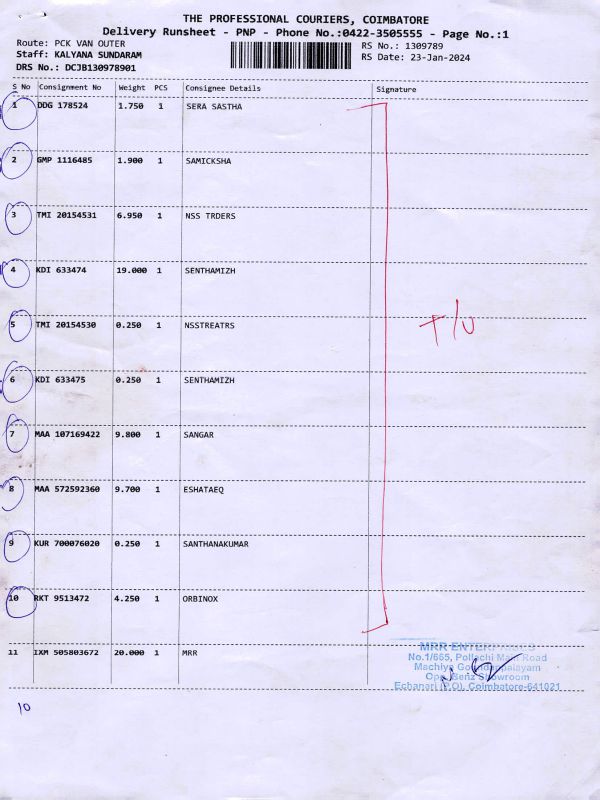 THE PROFESSIONAL COURIERS, COIMBATORE
Delivery Runsheet - PNP - Phone No.:0422-3505555 - Page No.:1
Route: PCK VAN OUTER
RS No.: 1309789
Staff: KALYANA SUNDARAM
RS Date: 23-Jan-2024
DRS No.: DCJB130978901
S No Consignment No Weight PCS Consignee Details Signature
1 DDG 178524 1.750 1 SERA SASTHA
2 GMP 1116485 1.900 1 SAMICKSHA
3 TMI 20154531 6.950 1 NSS TRDERS
4 KDI 633474 19.000 1 SENTHAMIZH
5 TMI 20154530 0.250 1 NSSTREATRS
6 KDI 633475 0.250 1 SENTHAMIZH
7 MAA 107169422 9.800 1 SANGAR
8 MAA 572592360 9.700 1 ESHATAEQ
9 KUR 700076020 0.250 1 SANTHANAKUMAR
10 RKT 9513472 4.250 1 ORBINOX
11 IXM 505803672 20.000 1 MRR
MRR ENTERPRISES
No.1/665, Pollachi Main Road
Machiya Goundanpalayam
Opp. Benz Showroom
Echanari (P.O), Coimbatore-641021
10